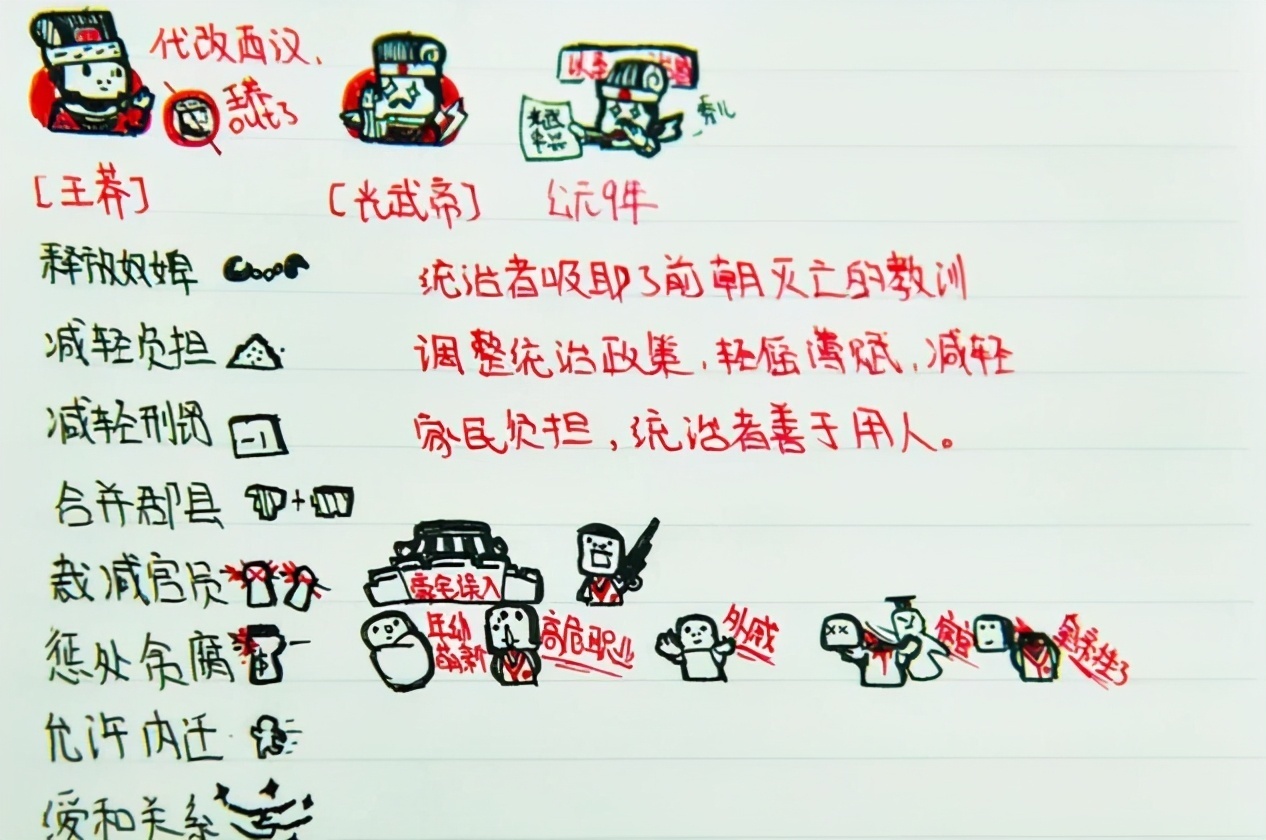 代改西汉,
王莽
out了
光武
中兴
[王莽] [光武帝] 公元9年
释放奴婢 统治者吸取了前朝灭亡的教训
减轻负担 调整统治政策,轻徭薄赋,减轻
减轻刑罚 -1 家民负担,统治者善于用人。
合并郡县 +
裁减官员 豪宅误入
惩处贪腐 年幼萌新 高危职业 外戚 宦官
允许内迁
缓和关系